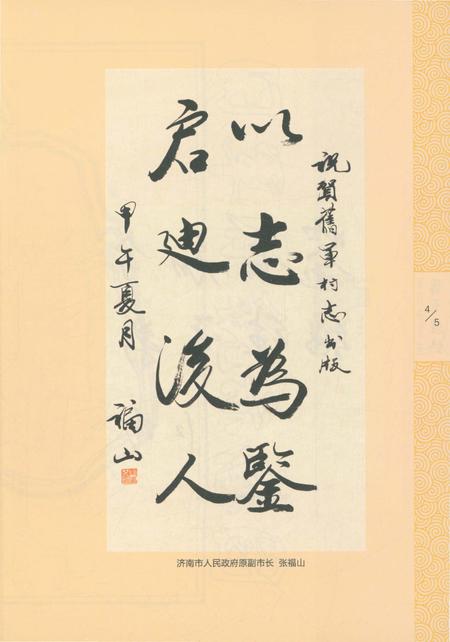 祝賀舊軍村志出版
以志為鑒
启迪後人
甲午夏月
福山
济南市人民政府原副市长 张福山
4/5